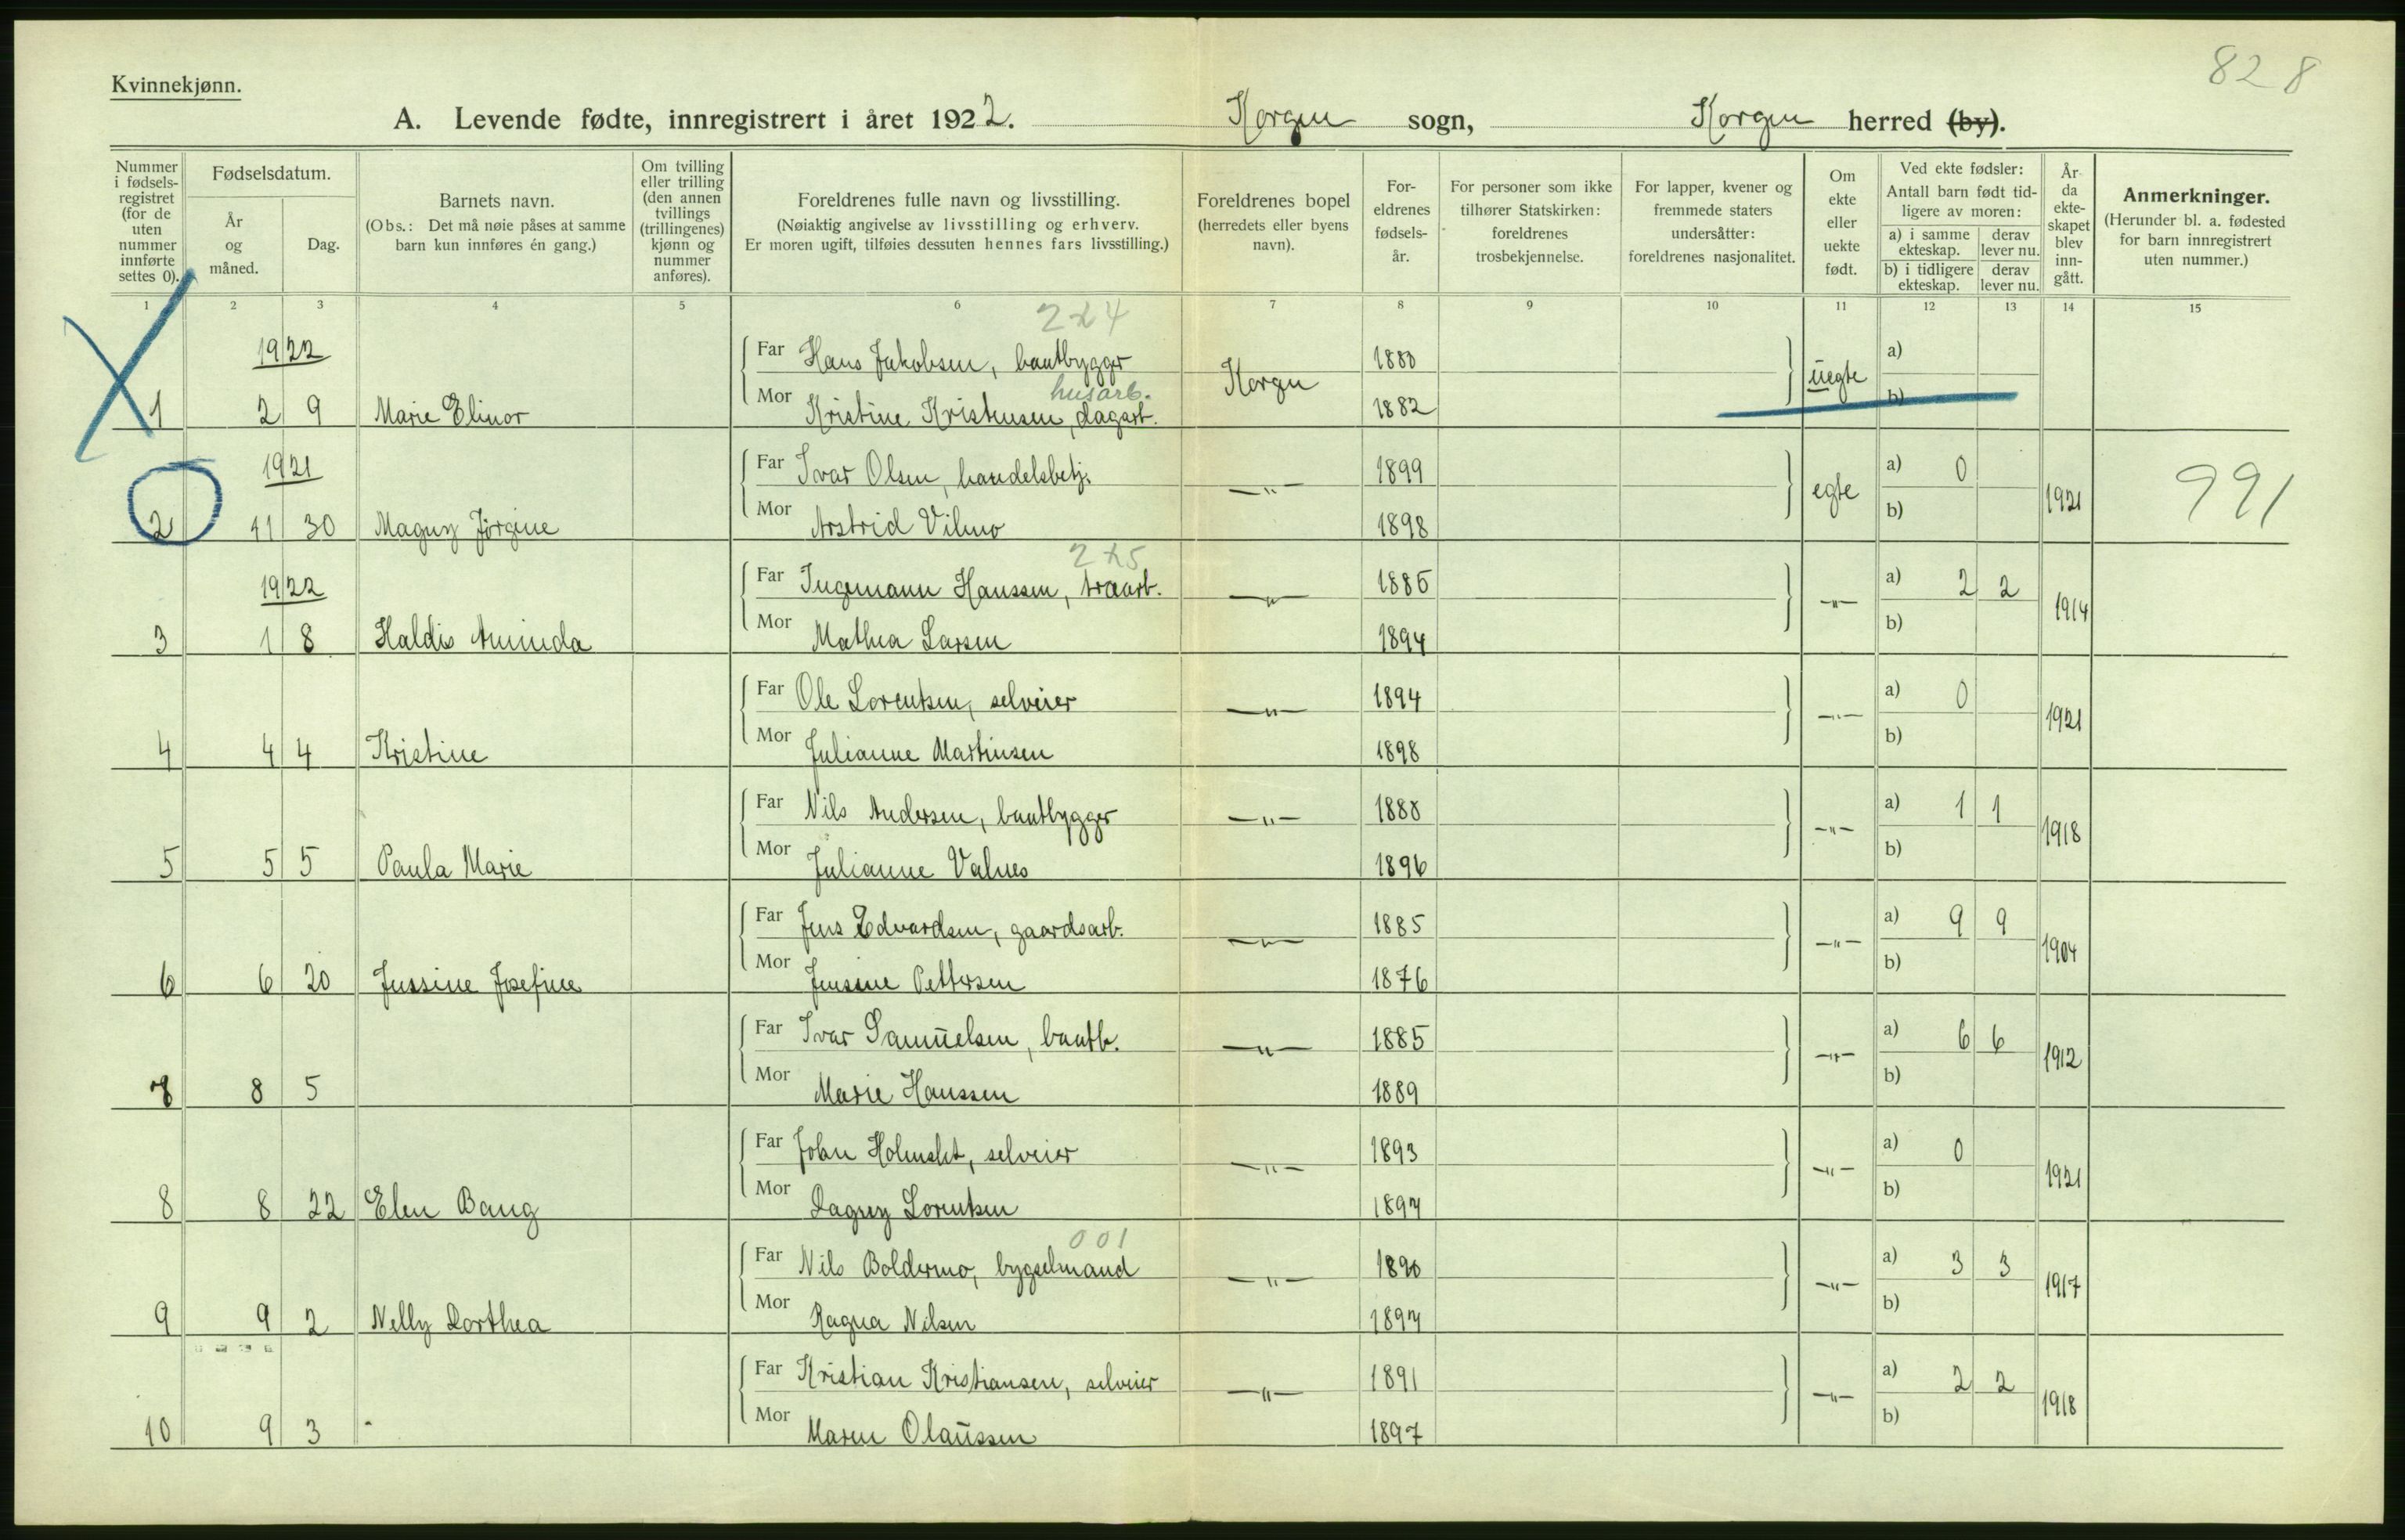 828
Kvinnekjønn.
A. Levende fødte, innregistrert i året 1922. Korgen sogn, Korgen herred (by).
Nummer i fødselsregistret (for de uten nummer innførte settes 0).
Fødselsdatum.
År og måned.
Dag.
Barnets navn.
(Obs.: Det må nøie påses at samme barn kun innføres én gang.)
Om tvilling eller trilling (den annen tvillings (trillingenes) kjønn og nummer anføres).
Foreldrenes fulle navn og livsstilling.
(Nøiaktig angivelse av livsstilling og erhverv.
Er moren ugift, tilføies dessuten hennes fars livsstilling.)
Foreldrenes bopel (herredets eller byens navn).
Foreldrenes fødselsår.
For personer som ikke tilhører Statskirken: foreldrenes trosbekjennelse.
For lapper, kvener og fremmede staters undersåtter: foreldrenes nasjonalitet.
Om ekte eller uekte født.
Ved ekte fødsler:
Antall barn født tidligere av moren:
a) i samme ekteskap. derav lever nu.
b) i tidligere ekteskap. derav lever nu.
År da ekteskapet blev inngått.
Anmerkninger.
(Herunder bl. a. fødested for barn innregistrert uten nummer.)
1 2 3 4 5 6 7 8 9 10 11 12 13 14 15
224
1922 Far Hans Jakobsen, baatbygger Korgen 1880 uegte a)
husarb.
1 2 9 Marie Elinor Mor Kristine Kristensen, dagarb. 1882 b)
1921 Far Ivar Olsen, handelsbetj. —"— 1899 egte a) 0 1921 991
2 11 30 Magny Jørgine Mor Arstrid Vilmo 1898 b)
225
1922 Far Ingemann Hanssen, traarb. —"— 1885 —"— a) 2 2 1914
3 1 8 Haldis Aminda Mor Mathea Larsen 1894 b)
Far Ole Lorentsen, selveier —"— 1894 —"— a) 0 1921
4 4 4 Kristine Mor Julianne Martinsen 1898 b)
Far Nils Andersen, baatbygger —"— 1888 —"— a) 1 1 1918
5 5 5 Paula Marie Mor Julianne Valnes 1896 b)
Far Jens Edvardsen, gaardsarb. —"— 1885 —"— a) 9 9 1904
6 6 20 Jussine Josefine Mor Jensine Pettersen 1876 b)
Far Ivar Samuelsen, baatb. —"— 1885 —"— a) 6 6 1912
7 8 5 Mor Marie Hanssen 1889 b)
Far John Holmslet, selveier —"— 1893 —"— a) 0 1921
8 8 22 Elen Bang Mor Dagny Lorentsen 1897 b)
001
Far Nils Boldermo, bygselmand —"— 1890 —"— a) 3 3 1917
9 9 2 Nelly Dorthea Mor Ragna Nilsen 1897 b)
Far Kristian Kristiansen, selveier —"— 1891 —"— a) 2 2 1918
10 9 3 - Mor Maren Olaussen 1897 b)